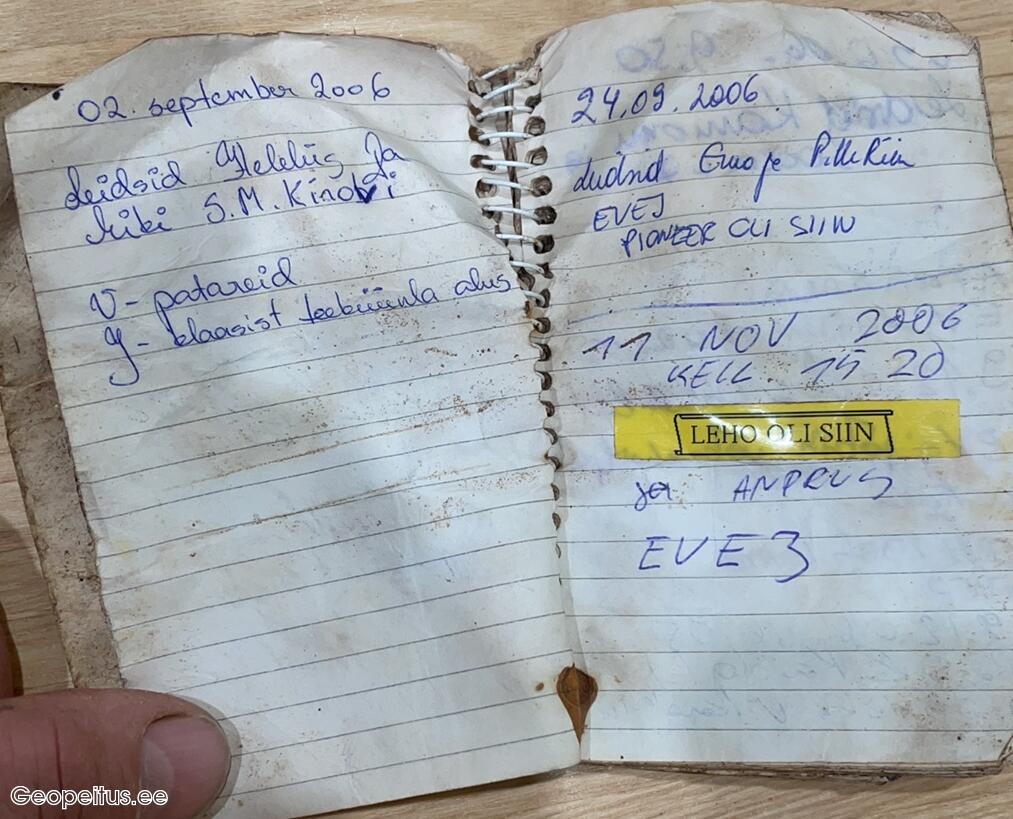 02. september 2006
leidsid Hellüs ja
Miki S.M. Kinovi
V- patareid
J- klaasist teeküünla alus
24.09.2006
leidsid Europe
EVEJ
PIONEER OLI SIIN
11 NOV 2006
KELL 15 20
LEHO OLI SIIN
ja ANDRUS
EVE 3
Geopeitus.ee